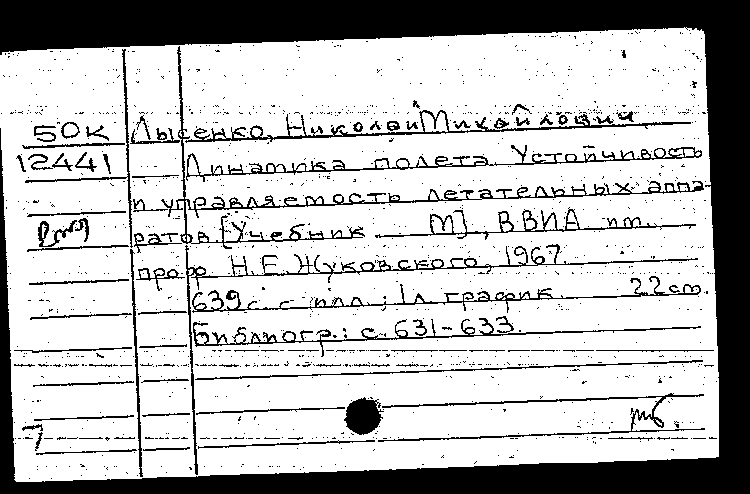 50К Лысенко, Николай Михайлович
12441 Динамика полета. Устойчивость
и управляемость летательных аппа-
ратов. [Учебник М], ВВИА им.
проф. Н.Е. Жуковского, 1967.
639 с. с илл.; 1 л. график. 22 см.
Библиогр.: с. 631-633.
7